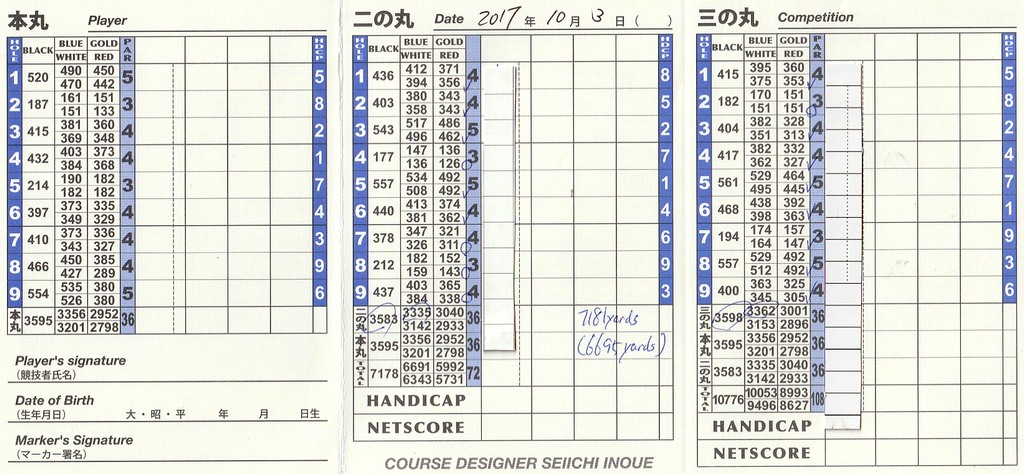 本丸 Player
HOLE BLACK BLUE WHITE GOLD RED PAR HDCP
1 520 490 470 450 442 5 5
2 187 161 151 151 133 3 8
3 415 381 369 360 348 4 2
4 432 403 384 373 368 4 1
5 214 190 182 182 182 3 7
6 397 373 349 335 329 4 4
7 410 373 343 336 327 4 3
8 466 450 427 385 289 4 9
9 554 535 526 380 380 5 6
本丸 3595 3356 3201 2952 2798 36
Player's signature
(競技者氏名)
Date of Birth
(生年月日) 大・昭・平 年 月 日生
Marker's Signature
(マーカー署名)
二の丸 Date 2017年 10月 3日( )
HOLE BLACK BLUE WHITE GOLD RED HDCP
1 436 412 394 371 356 4 8
2 403 380 358 343 343 4 5
3 543 517 496 486 462 5 2
4 177 147 136 136 126 3 7
5 557 534 508 492 492 5 1
6 440 413 381 374 362 4 4
7 378 347 326 321 311 4 6
8 212 182 159 152 143 3 9
9 437 403 384 365 338 4 3
二の丸 3583 3335 3142 3040 2933 36
本丸 3595 3356 3201 2952 2798 36
TOTAL 7178 6691 6343 5992 5731 72
7181yards
(6695yards)
HANDICAP
NETSCORE
COURSE DESIGNER SEIICHI INOUE
三の丸 Competition
HOLE BLACK BLUE WHITE GOLD RED PAR HDCP
1 415 395 375 360 353 4 5
2 182 170 151 151 151 3 8
3 404 382 351 328 313 4 2
4 417 382 362 332 327 4 4
5 561 529 495 464 445 5 7
6 468 438 398 392 363 4 1
7 194 174 164 157 147 3 9
8 557 529 512 492 492 5 3
9 400 363 345 325 305 4 6
三の丸 3598 3362 3153 3001 2896 36
本丸 3595 3356 3201 2952 2798 36
二の丸 3583 3335 3142 3040 2933 36
TOTAL 10776 10053 9496 8993 8627 108
HANDICAP
NETSCORE